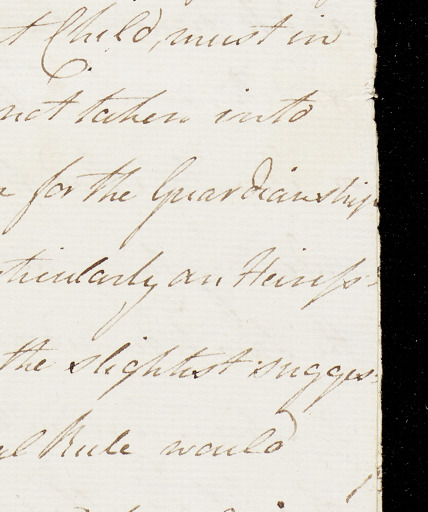 t Child, must in
not taken into
for the Guardianship
ticularly an Heiress-
the slightest sugges-
al Rule would